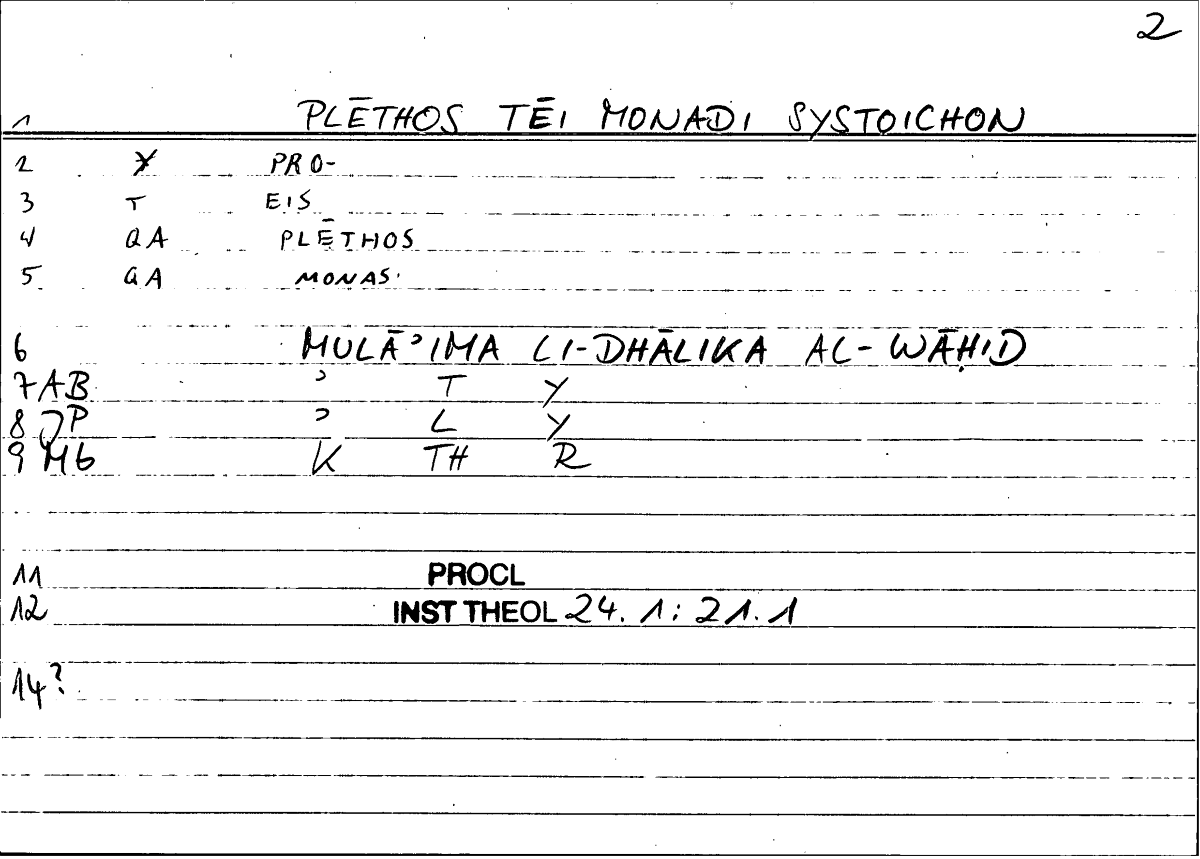 2
1 PLĒTHOS TĒI MONADI SYSTOICHON
2 PRO-
3 T EIS
4 QA PLĒTHOS
5 QA MONAS
6 MULĀʾIMA LI-DHĀLIKA AL-WĀḤID
7 AB ʾ T Y
8 JP ʾ L Y
9 Mb K TH R
11 PROCL
12 INST THEOL 24.1:21.1
14?